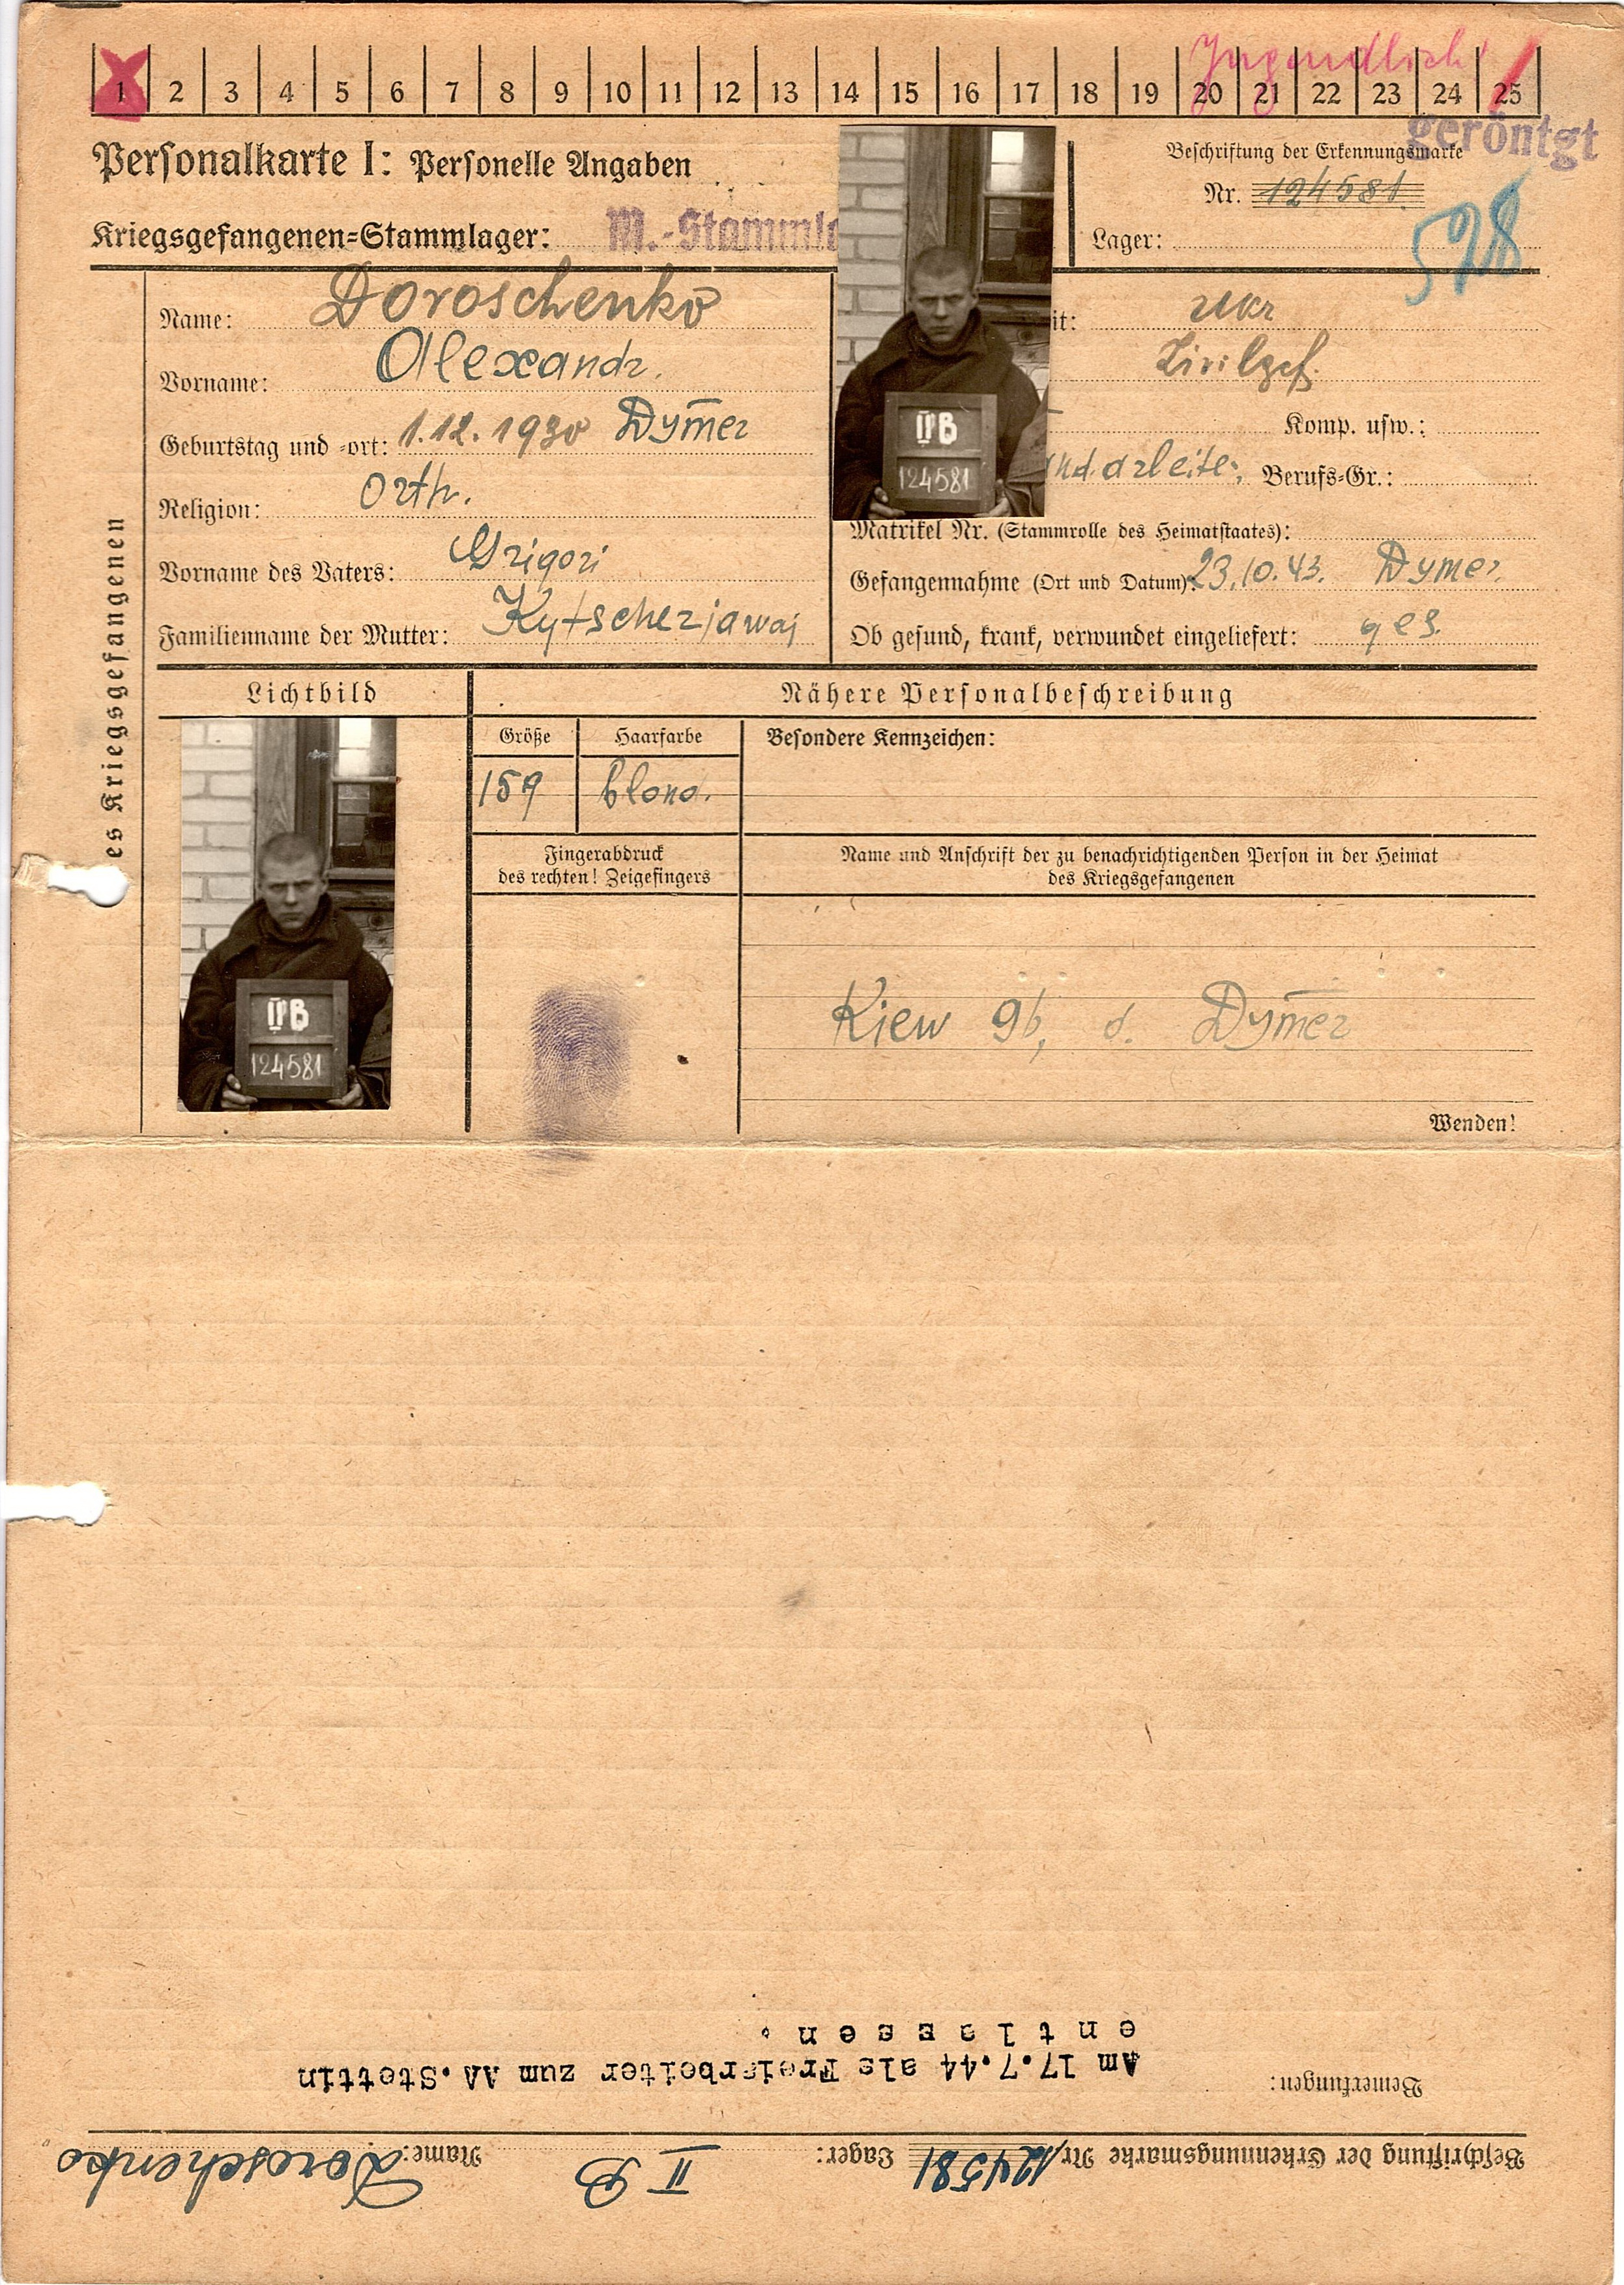 Jugendlich
1 2 3 4 5 6 7 8 9 10 11 12 13 14 15 16 17 18 19 20 21 22 23 24 25
geröntgt
Personalkarte I: Personelle Angaben
Beschriftung der Erkennungsmarke
Nr. 124581.
Kriegsgefangenen-Stammlager: M.-Stammla
Lager:
528
Name: Doroschenko
it: Ukr
Vorname: Alexandr.
Zivilgef.
Geburtstag und -ort: 1.12.1930 Dymer
Komp. usw.:
Religion: Orth.
andarbeiter, Berufs-Gr.:
Matrikel Nr. (Stammrolle des Heimatstaates):
Vorname des Vaters: Grigori
Gefangennahme (Ort und Datum): 23.10.43. Dymer.
Familienname der Mutter: Kytscherjawaj
Ob gesund, krank, verwundet eingeliefert: ges.
II B
124581
es Kriegsgefangenen
Lichtbild
Nähere Personalbeschreibung
Größe Haarfarbe Besondere Kennzeichen:
159 blond.
Fingerabdruck
des rechten! Zeigefingers
Name und Anschrift der zu benachrichtigenden Person in der Heimat
des Kriegsgefangenen
II B
124581
Kiew gb, d. Dymer
Wenden!
Name: Doroschenko Lager: II B Beschriftung der Erkennungsmarke Nr. 124581
Bemerkungen: Am 17.7.44 als Freiarbeiter zum AA.Stettin
entlassen.